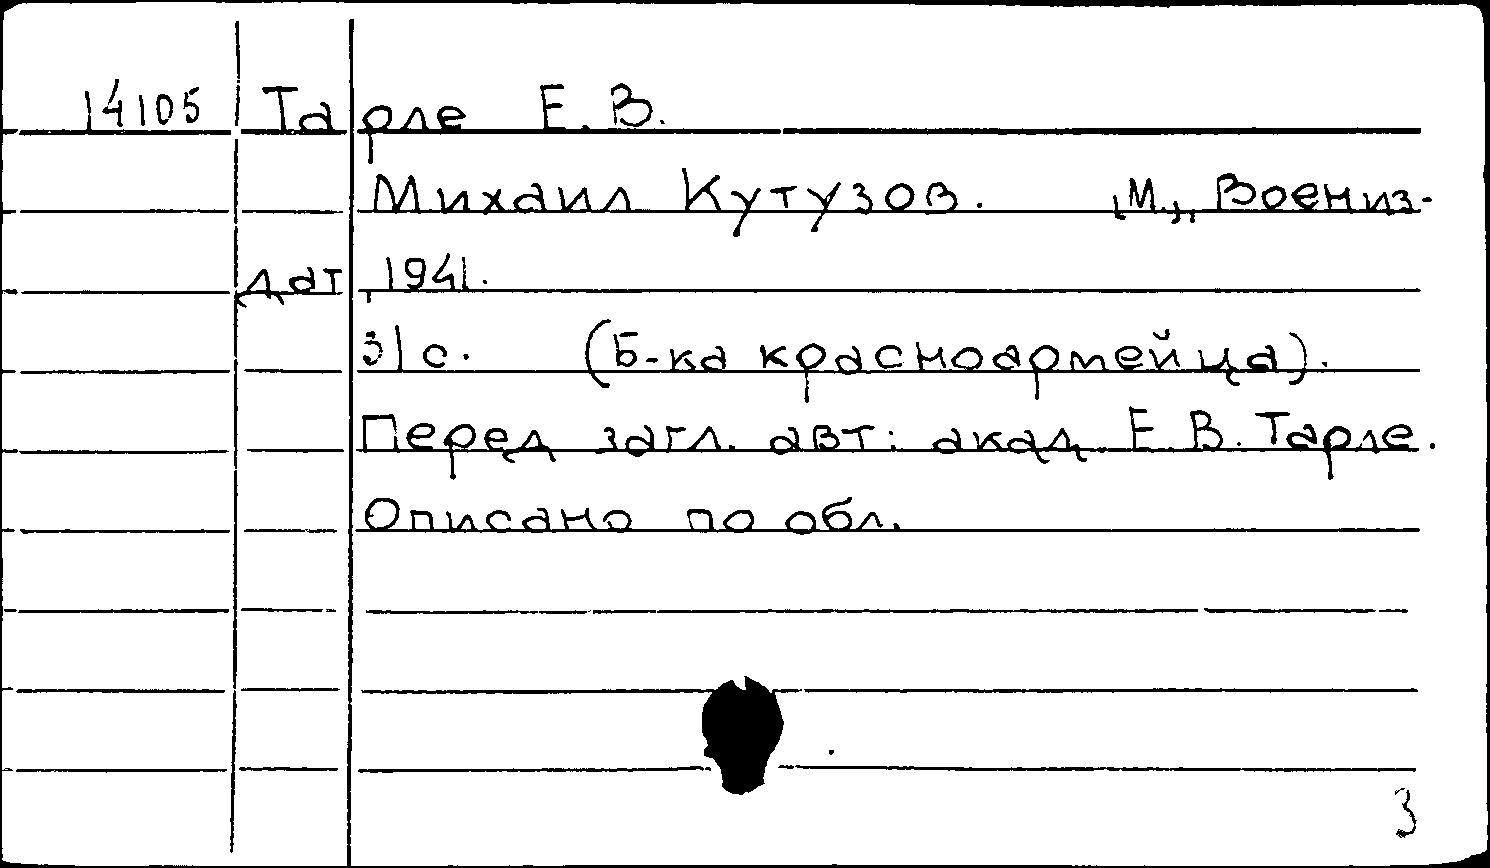 14105 Тарле Е. В.
Михаил Кутузов. М., Воениз-
дат, 1941.
31 с. (Б-ка красноармейца).
Перед загл. авт: акад. Е. В. Тарле.
Описано по обл.
3